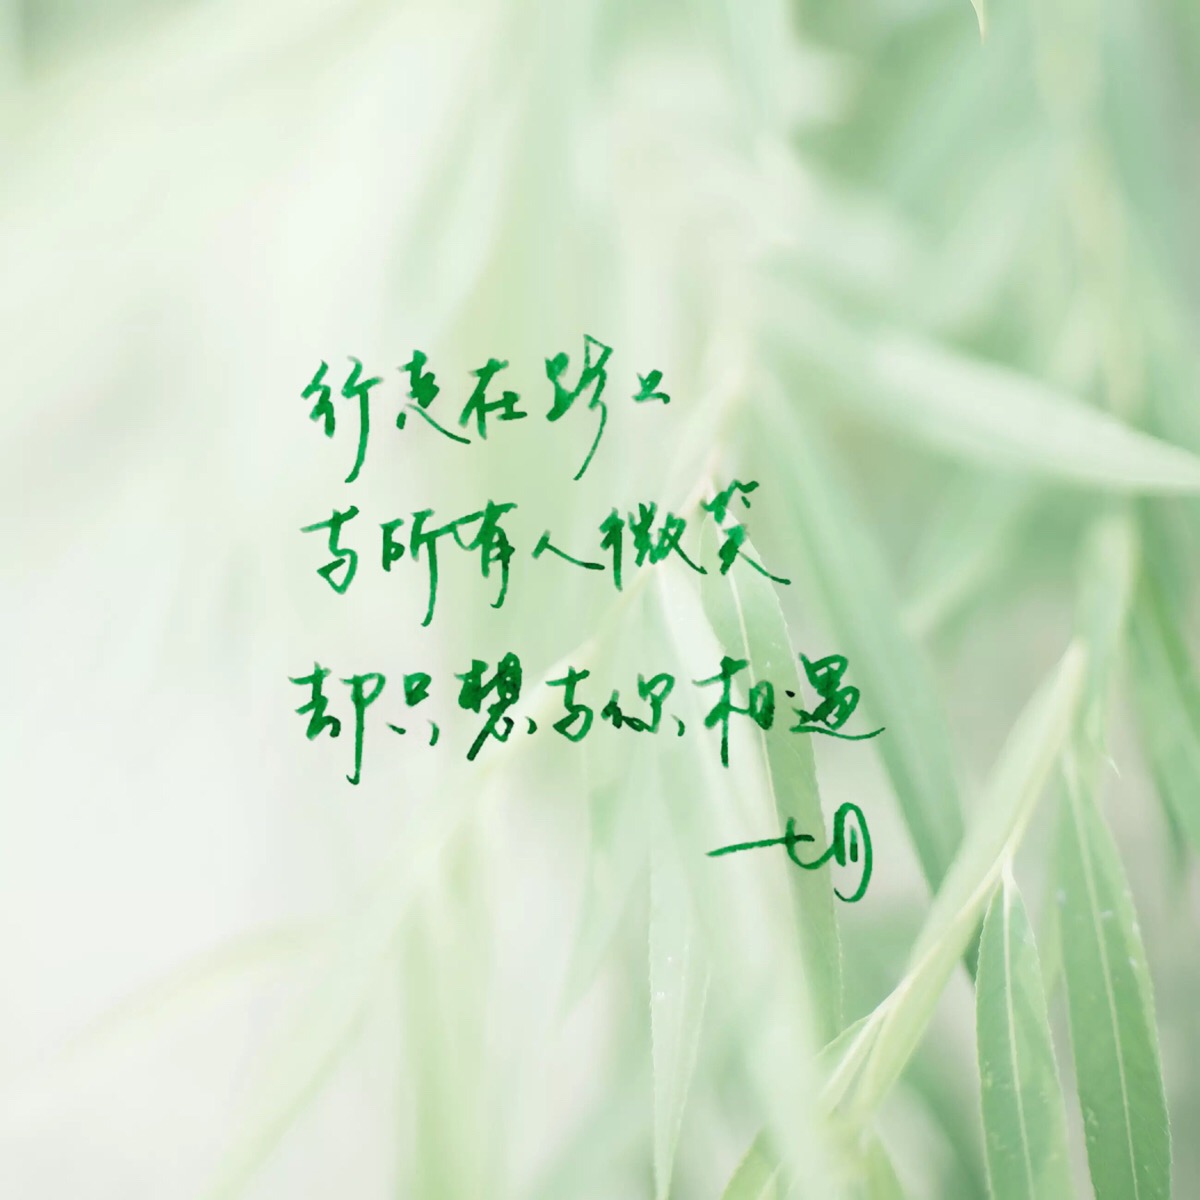 行走在路上
与所有人微笑
却只想与你相遇
七月